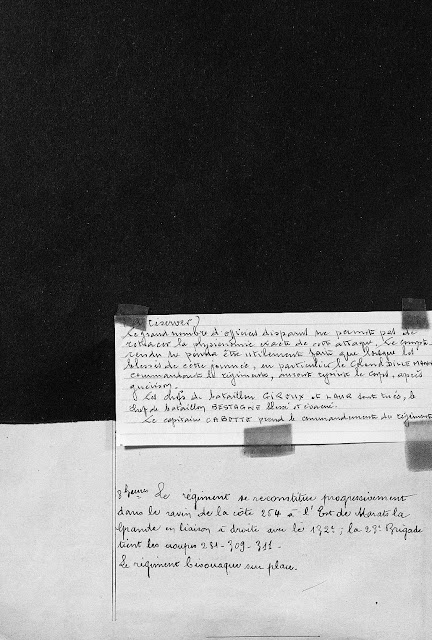 (à réserver)
Le grand nombre d'officiers disparus ne permet pas de
retracer la physionomie exacte de cette attaque. Le compte
rendu ne pourra être utilement fait que lorsque les
blessés de cette journée, en particulier le
commandants le régiment, auront rejoint le corps, après
guérison.
Les chefs de bataillon GIROUX et LAUR sont tués, le
chef de bataillon BESTAGNE blessé et évacué.
Le capitaine CABOTTE prend le commandement du régiment
3 heures Le régiment se reconstitue progressivement
dans le ravin de la côte 254 à l'Est de Marats la
Grande en liaison à droite avec le 132e; la 29e Brigade
tient les croupes 281-309-311-
Le régiment bivouaque sur place.